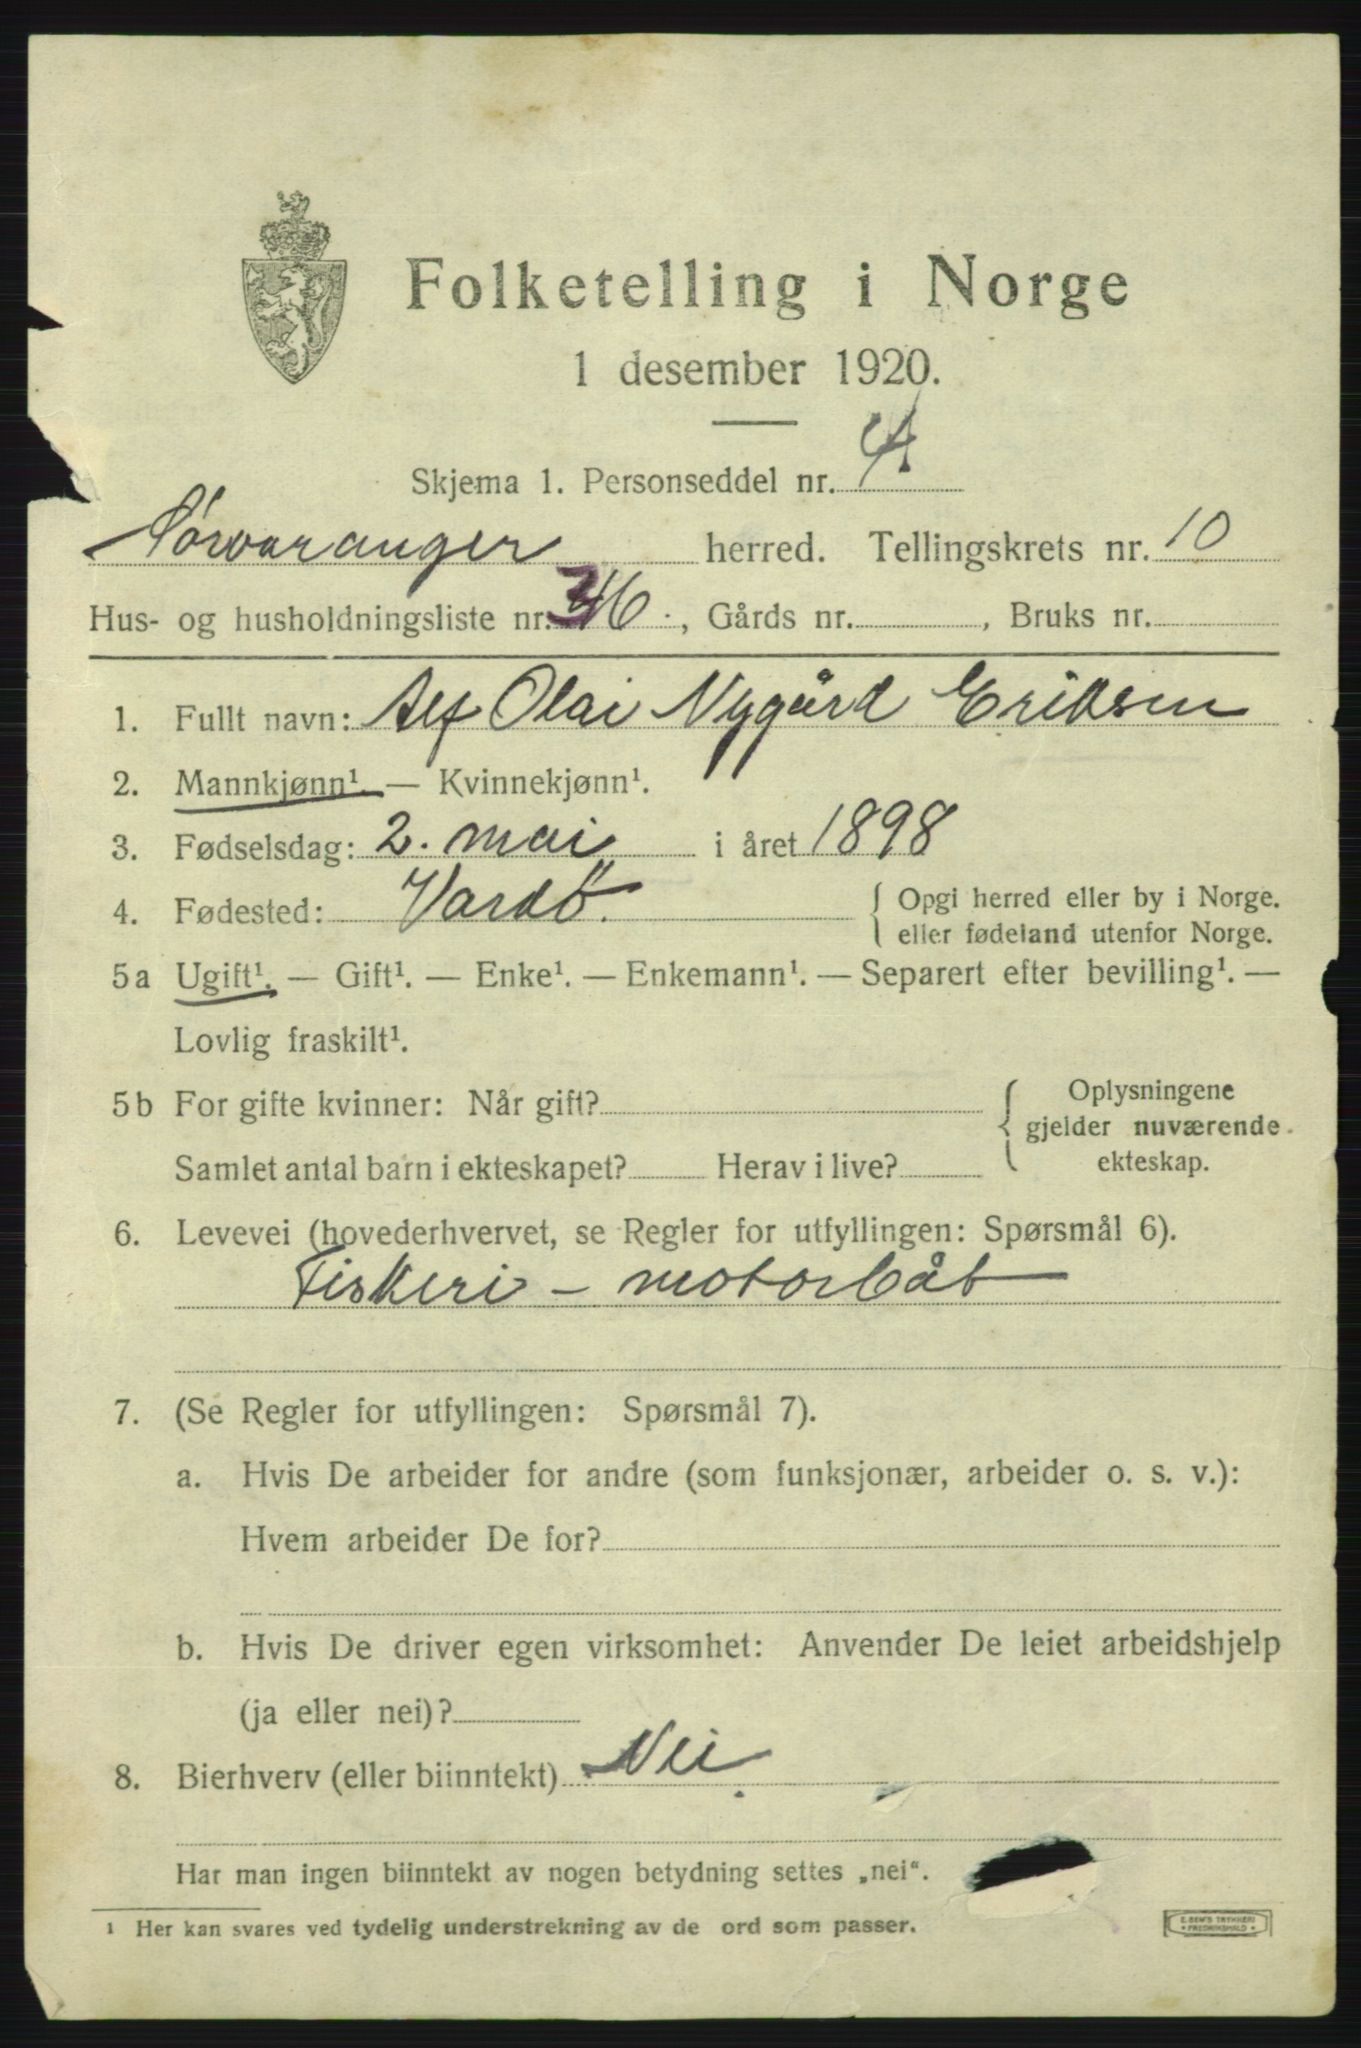 Folketelling i Norge
1 desember 1920.
Skjema 1. Personseddel nr. 4
Sørvaranger herred. Tellingskrets nr. 10
Hus- og husholdningsliste nr. 36., Gårds nr. , Bruks nr.
1. Fullt navn: Alf Olai Nygård Eriksen
2. Mannkjønn¹. — Kvinnekjønn¹.
3. Fødselsdag: 2. mai i året 1898
4. Fødested: Vardö. { Opgi herred eller by i Norge.
eller fødeland utenfor Norge.
5a Ugift¹. — Gift¹. — Enke¹. — Enkemann¹. — Separert efter bevilling¹. —
Lovlig fraskilt¹.
5b For gifte kvinner: Når gift? { Oplysningene
gjelder nuværende
ekteskap.
Samlet antal barn i ekteskapet? Herav i live?
6. Levevei (hovederhvervet, se Regler for utfyllingen: Spørsmål 6).
Fiskeri – motorbåt
7. (Se Regler for utfyllingen: Spørsmål 7).
a. Hvis De arbeider for andre (som funksjonær, arbeider o. s. v.):
Hvem arbeider De for?
b. Hvis De driver egen virksomhet: Anvender De leiet arbeidshjelp
(ja eller nei)?
8. Bierhverv (eller biinntekt) Nei
Har man ingen biinntekt av nogen betydning settes „nei“.
¹ Her kan svares ved tydelig understrekning av de ord som passer.
E. SEM'S TRYKKERI
FREDRIKSHALD